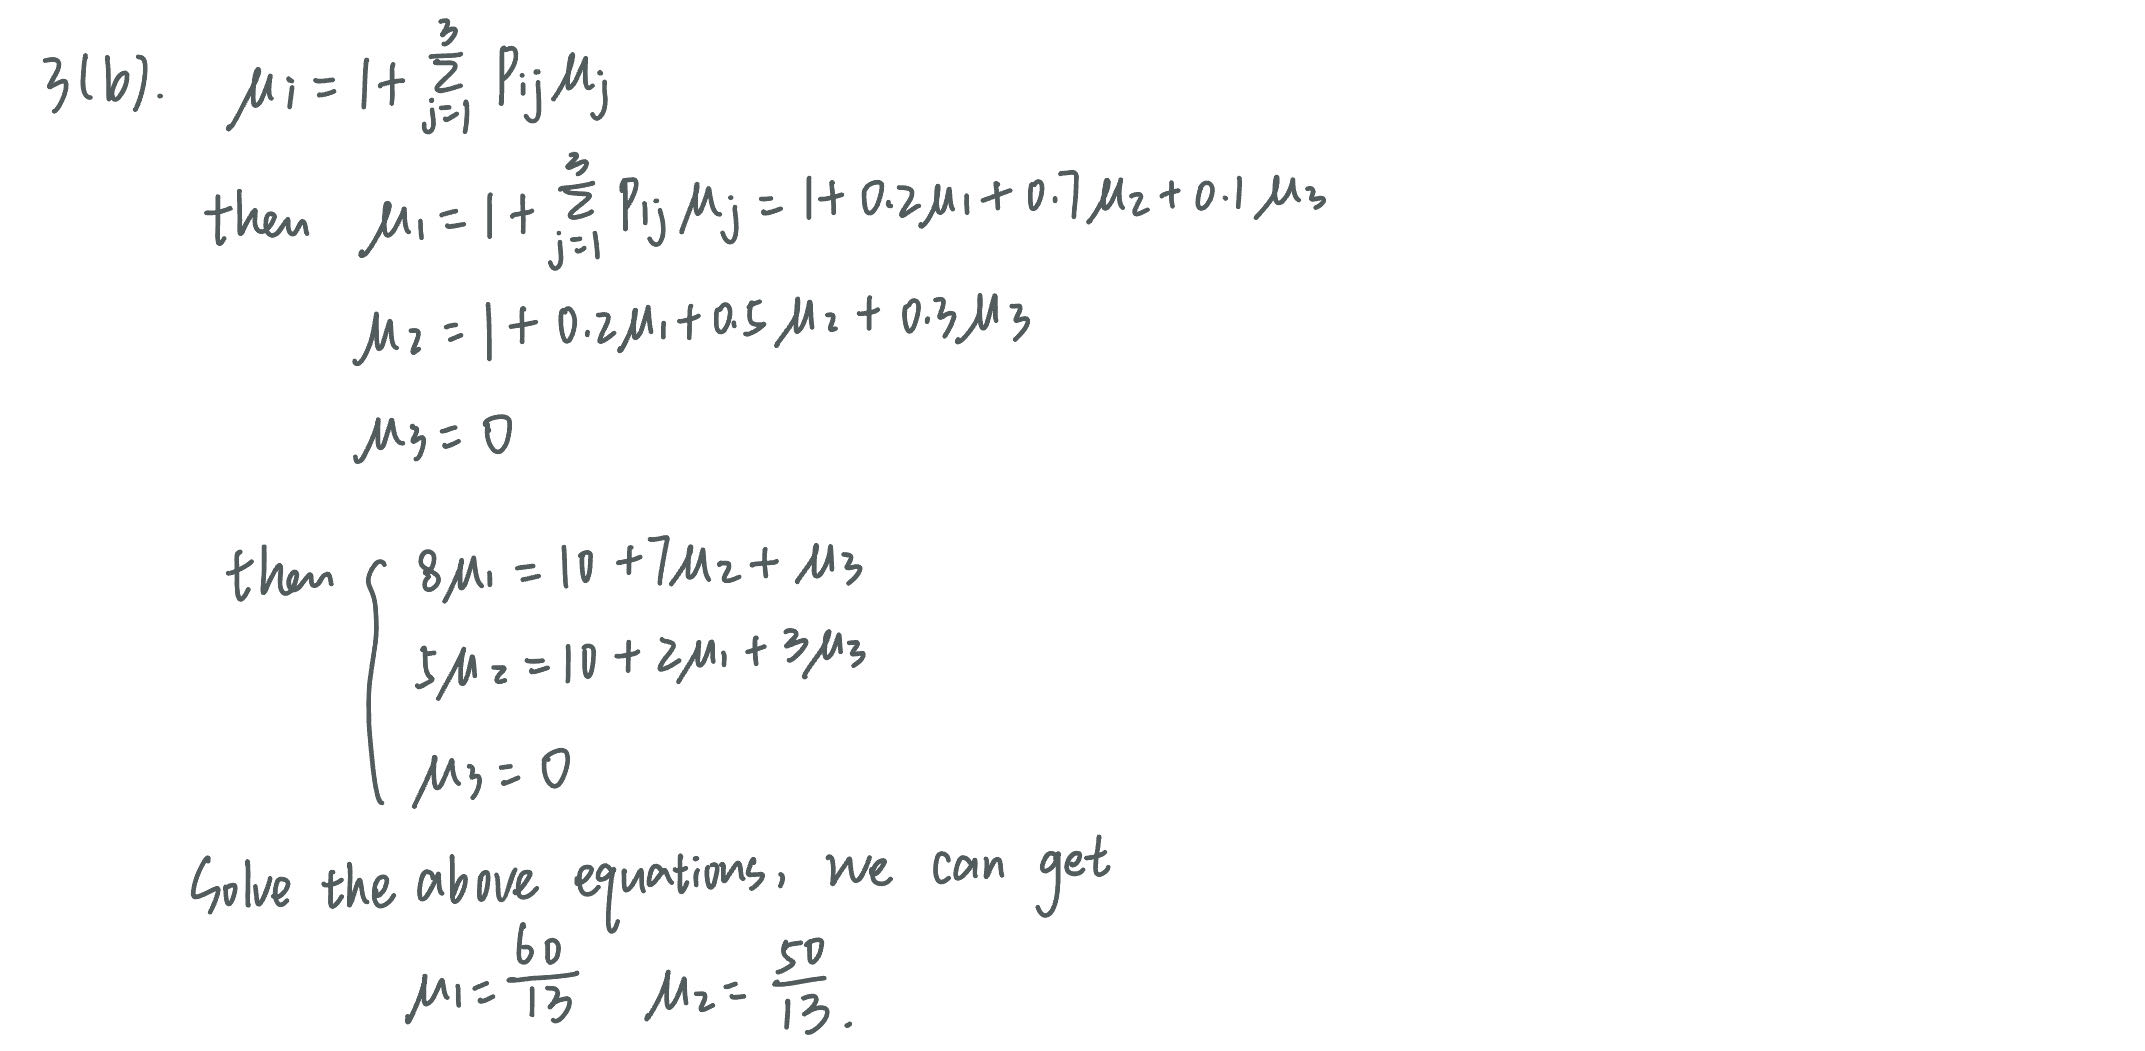 3(b). μi = 1 + 3 Σ j=1 Pij μj
then μ1 = 1 + 3 Σ j=1 P1j μj = 1 + 0.2μ1 + 0.7μ2 + 0.1μ3
μ2 = 1 + 0.2μ1 + 0.5μ2 + 0.3μ3
μ3 = 0
then { 8μ1 = 10 + 7μ2 + μ3
5μ2 = 10 + 2μ1 + 3μ3
μ3 = 0
Solve the above equations, we can get
μ1 = 60/13 μ2 = 50/13.